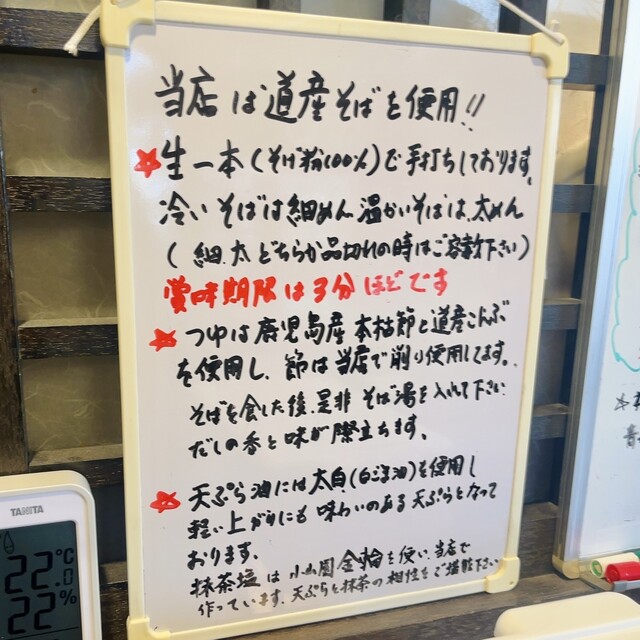 当店は道産そばを使用!!
★生一本(そば粉100%)で手打ちしております。
冷いそばは細めん 温かいそばは、太めん
(細、太どちらか品切れの時はご容赦下さい)
賞味期限は3分ほどです
★つゆは鹿児島産本枯節と道産こんぶ
を使用し、節は当店で削り使用してます。
そばを食した後、是非そば湯を入れて下さい
だしの香と味が際立ちます。
★天ぷら油には太白(白ごま油)を使用し
軽い上がりにも味わいのある天ぷらとなって
おります。
抹茶塩は小山園金輪を使い、当店で
作っています。天ぷらと抹茶の相性をご堪能下さい
TANITA
22.0℃
22%